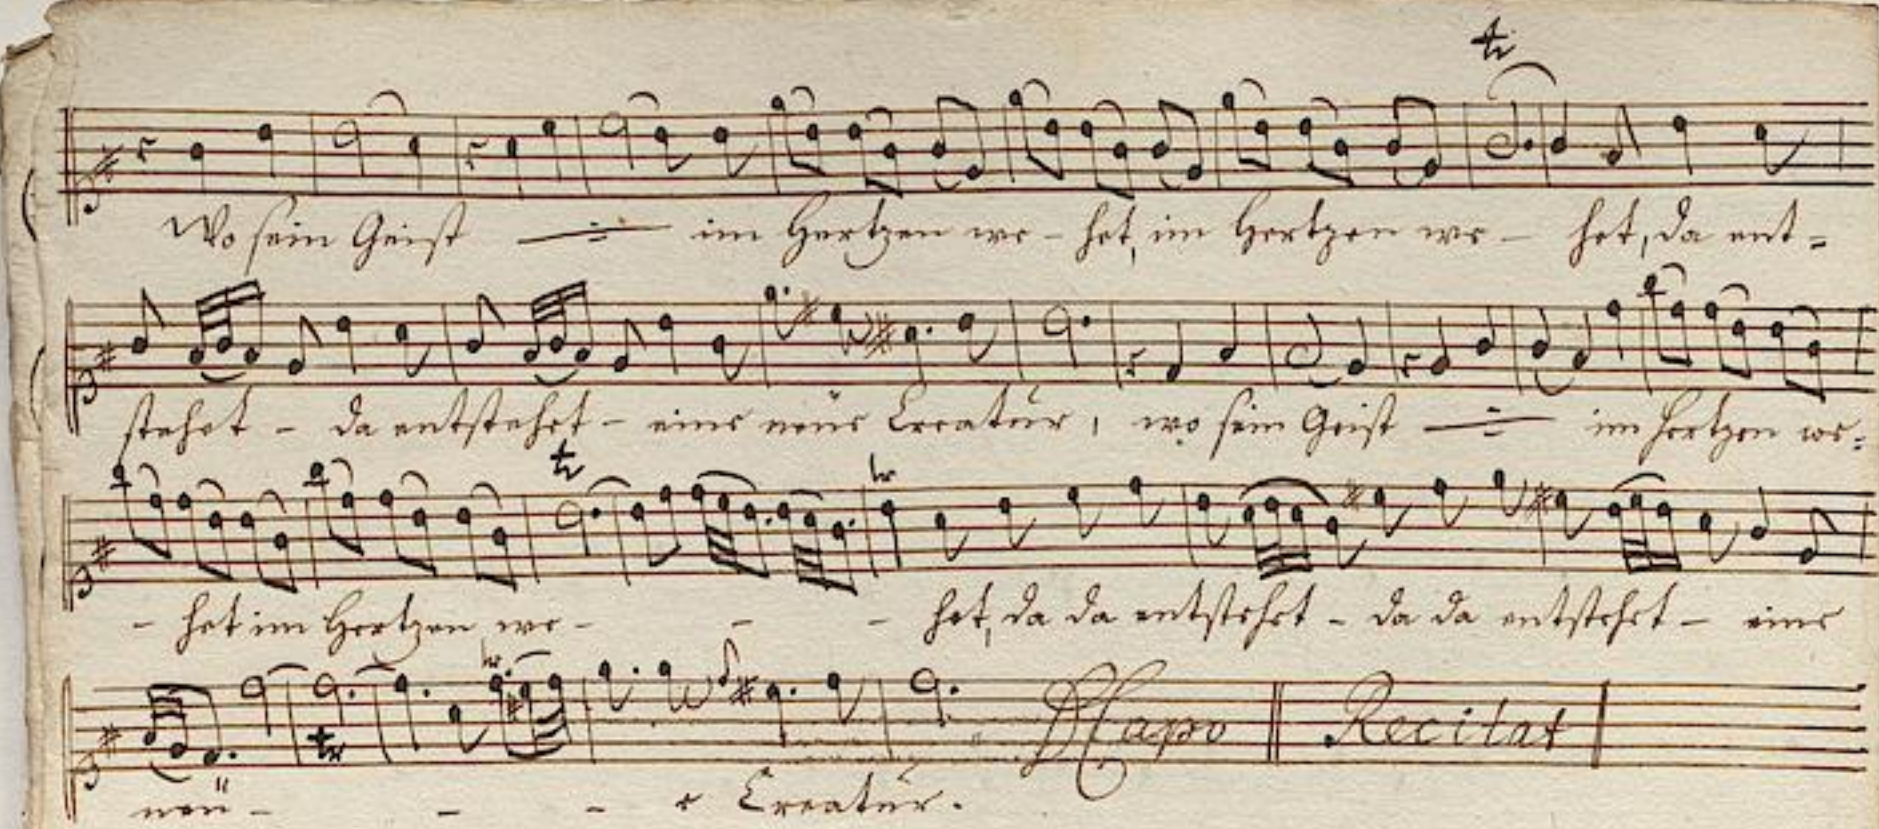 Wo sein Geist im Hertzen we- het, im Hertzen we- het, da ent=
stehet - da entstehet - eine neüe Creatür, wo sein Geist im Hertzen we=
- het im Hertzen we- - - het, da da entstehet - da da entstehet - eine
D Capo Recitat
neü- - - e Creatür.